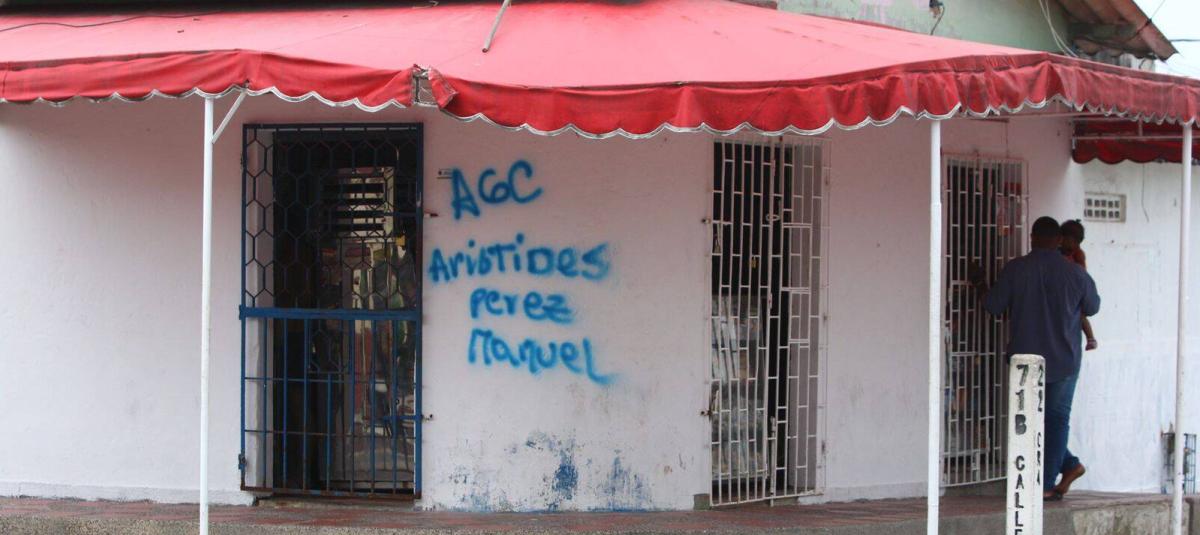 AGC
ArisTiDes
Perez
Manuel
71B CALLE
22 CRA